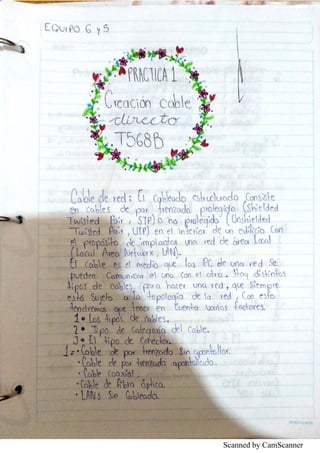 EQUIPO 6 y 5
PRACTICA 1
Creación cable
directo
T568B
Cable de red: El cableado estructurado consiste
en cables de par trenzado protegido (Shielded
Twisted Pair, STP) o no protegido (Unshielded
Twisted Pair, UTP) en el interior de un edificio con
el propósito de implantar una red de área local
(Local Area Network, LAN).
El cable es el medio que los PC de una red se
pueden comunicar el uno con el otro. Hay distintos
tipos de cables, para hacer una red, que siempre
está sujeto a la topología de la red, con esto
tendremos que tener en cuenta varios factores.
1• Los tipos de cables.
2• Tipo de categoría del cable.
3• El tipo de conector.
1.- • Cable de par trenzado sin apantallar.
• Cable de par trenzado apantallado.
• Cable coaxial.
• Cable de fibra óptica.
• LANs sin cableado.
Scanned by CamScanner